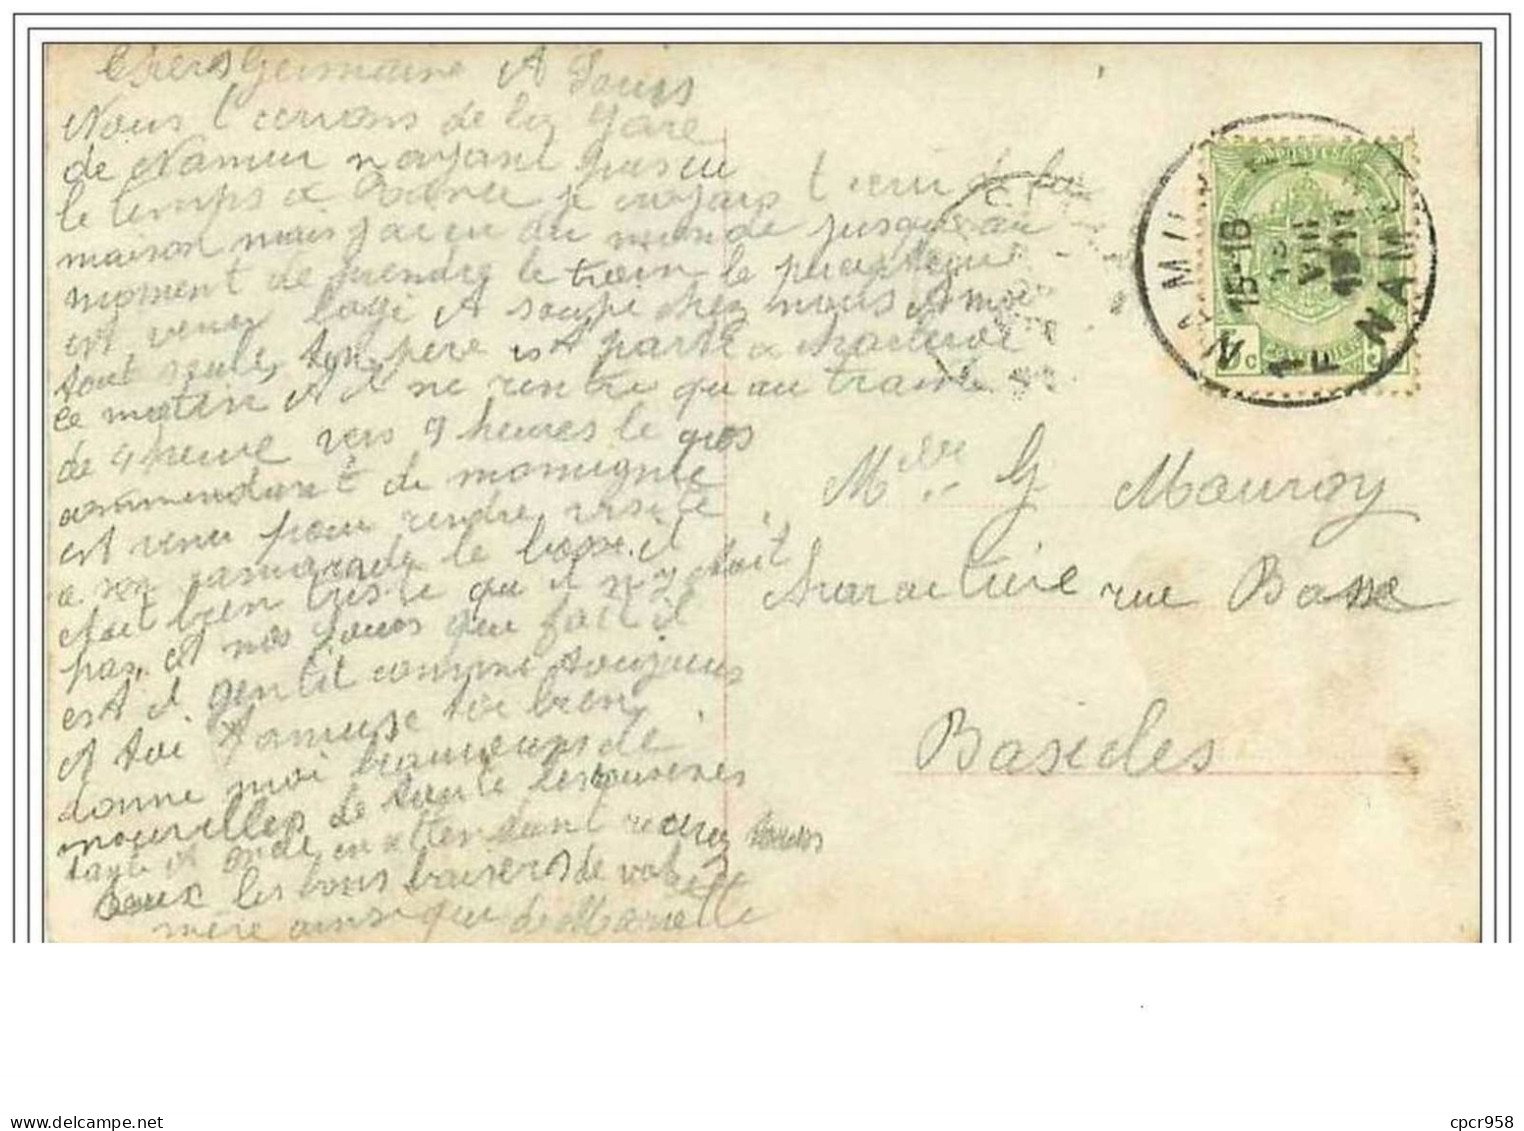 Chers Germaine A Louis
Nous t'ecrivons de la Gare
de Namur n'ayant pas eu
le temps a je croyais t'ecrir de la
maison mais j'ai eu du monde jusqu'au
moment de prendre le train le
est venu logé A soupé chez nous A moi
tout seule, ton père est A parti a charleroi
ce matin A il ne rentre qu'au train
de 9 heure vers 9 heures le gros
commendant de momignie
est venu pour rendre visite
a son camarade le bosse. il
était bien triste qu'il n'y était
pas, et nos que fait il
est il gentil comme toujours
et toi t'amuse toi bien
donne moi beaucoups de
nouvelles de toute les cousines
tante et oncle en attendant recevez tous
deux les bons baisers de votre
mère ainsi que de Mariette
NAMUR NAMUR
15-16
VIII
1911
1 F
5 c 5
Melle G Mouroy
rue Basse
Basècles
cpcr958